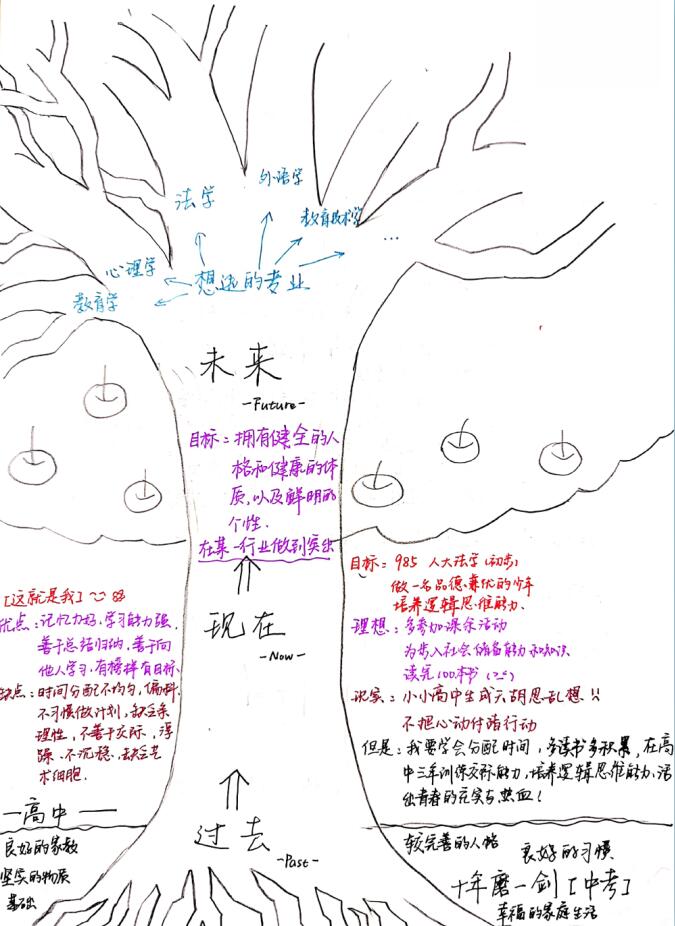 外语学
法学
教育技术学
...
心理学
想选的专业
教育学
未来
-Future-
目标：拥有健全的人
格和健康的体
质，以及鲜明的
个性.
在某一行业做到突出
目标：985 人大法学（初步）
做一名品德兼优的少年
培养逻辑思维能力.
理想：多参加课余活动
为步入社会储备能力和知识
读完100本书
现实：小小高中生成天胡思乱想!!
不把心动付诸行动
但是：我要学会分配时间，多读书多积累，在高
中三年训练交际能力，培养逻辑思维能力、活
出青春的充实与热血！
[这就是我]
优点：记忆力好，学习能力强.
善于总结归纳，善于向
他人学习，有榜样有目标.
缺点：时间分配不均匀，偏科.
不习惯做计划，缺乏条
理性，不善于交际，浮
躁、不沉稳、缺乏艺
术细胞.
现在
-Now-
一高中一
过去
-Past-
良好的家教
坚实的物质
基础
较完善的人格
良好的习惯
十年磨一剑[中考]
幸福的家庭生活